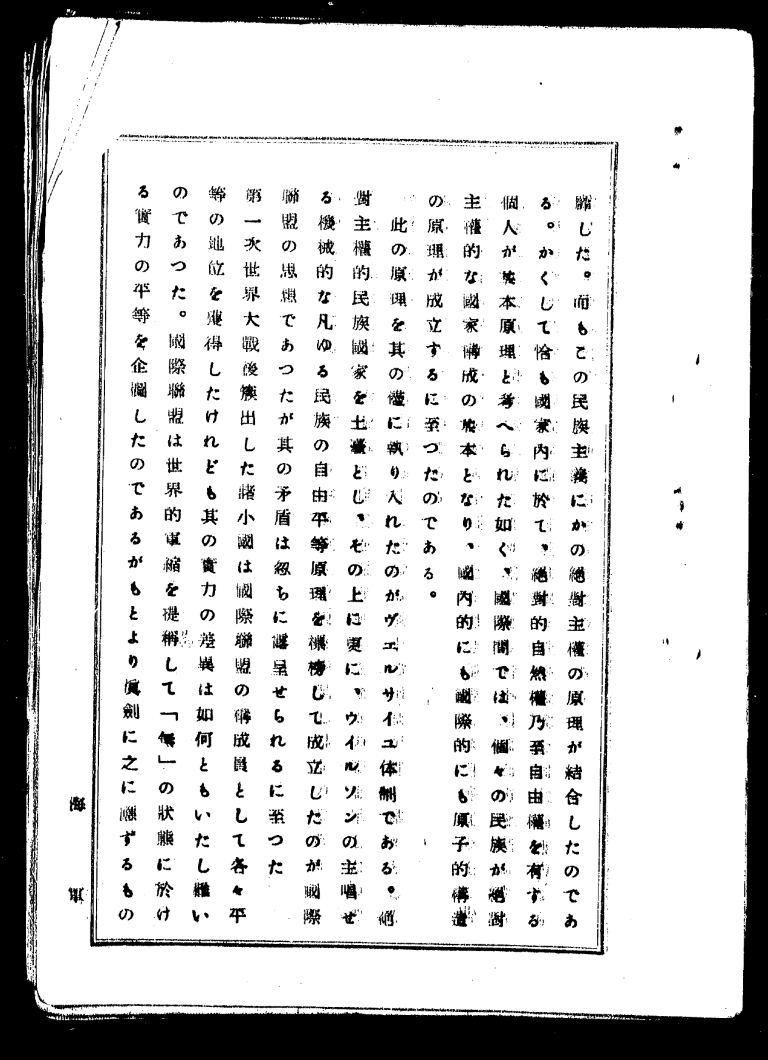 歸した。而もこの民族主義にかの絶對主權の原理が結合したのであ
る。かくして恰も國家內に於て、絶對的自然權乃至自由權を有する
個人が基本原理と考へられた如く、國際間では、個々の民族が絶對
主權的な國家構成の基本となり、國內的にも國際的にも原子的構造
の原理が成立するに至つたのである。
此の原理を其の儘に執り入れたのがヴエルサイユ体制である。絶
對主權的民族國家を土臺とし、その上に更に、ウイルソンの主唱せ
る機械的な凡ゆる民族の自由平等原理を標榜して成立したのが國際
聯盟の思想であつたが其の矛盾は忽ちに露呈せられるに至つた
第一次世界大戰後簇出した諸小國は國際聯盟の構成員として各々平
等の地位を獲得したけれども其の實力の差異は如何ともいたし難い
のであつた。國際聯盟は世界的軍縮を提稱して「無」の狀態に於け
る實力の平等を企圖したのであるがもとより眞劍に之に應ずるもの
海 軍